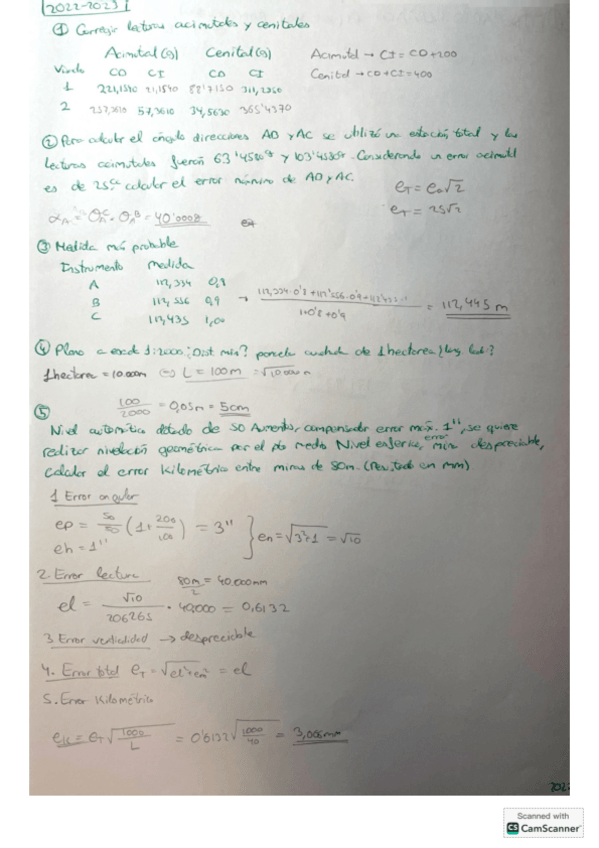 [2022-2023]
① Corregir lecturas acimutales y cenitales
Acimutal (g) Cenital (g) Acimutal → CI = CO+200
Visado CO CI CO CI Cenital → CO+CI=400
1 221,1540 21,1540 88'7150 311,2850
2 257,3610 57,3610 34,5630 365'4370
② Para calcular el ángulo direcciones AB y AC se utilizó una estación total y las
lecturas acimutales fueron 63'4580g y 103'4580g. Considerando un error acimutal
es de 25cc calcular el error máximo de AB y AC.
eT = ea√2
eT = 25√2
= 40'0008
③ Medida más probable
Instrumento medida
A 112,334 0,8
B 112,556 0,9 →
C 112,435 1,00
1+0'8+0'9
= 112,445 m
④ Plano a escala 1:2000. ¿Dist. min? parcela cuadrada de 1 hectarea
1 hectarea = 10.000m L = 100m = √10.000m
100/2000 = 0,05m = 5cm
⑤
Nivel automático dotado de 50 Aumentos, compensador error máx. 1'', se quiere
realizar nivelación geométrica por el pto medio Nivel esférico, error min despreciable,
Calcular el error Kilométrico entre miras de 80m. (Resultado en mm)
1 Error angular
ep = 50/50 (1+200/100) = 3''
eh = 1''
} en = √3²+1 = √10
2. Error lectura 80m/2 = 40.000mm
el = √10/206265 · 40,000 = 0,6132
3 Error verticalidad → despreciable
4. Error total eT = √el²+en² = el
5. Error Kilométrico
eK = eT √1000/L = 0'6132 √1000/40 = 3,006mm
202
Scanned with
CS CamScanner